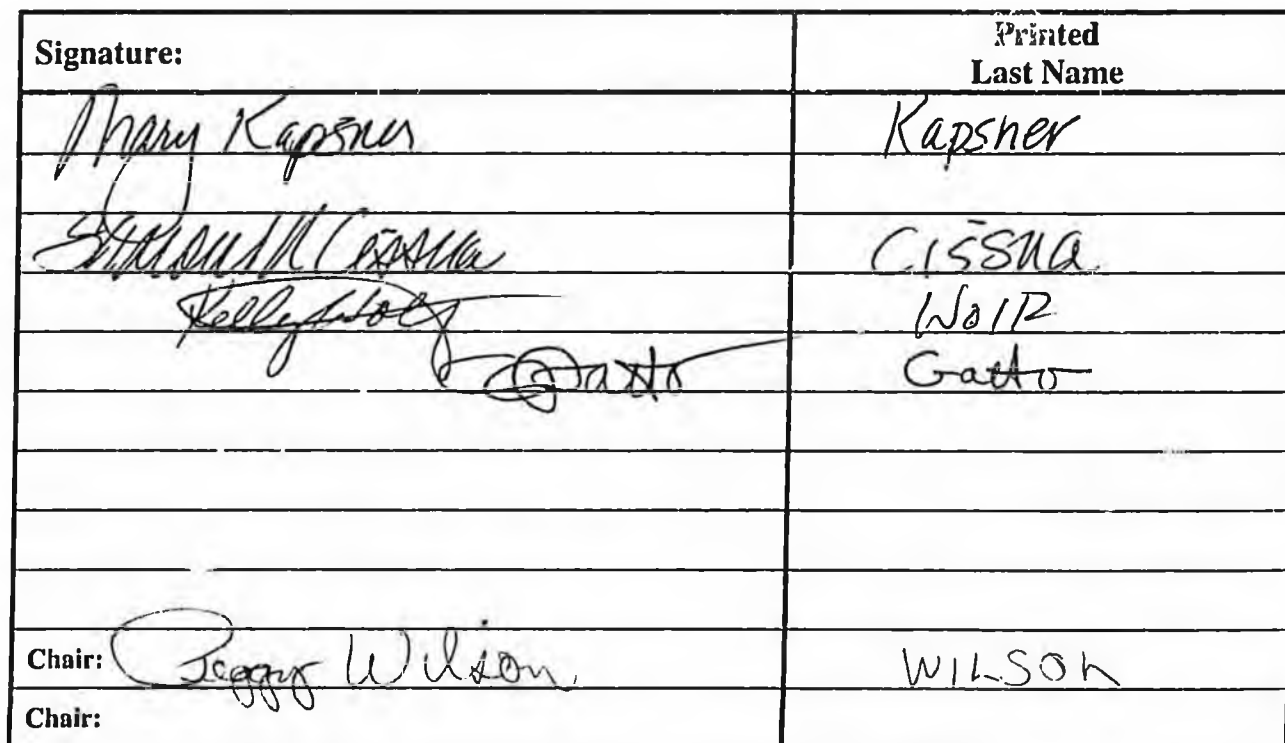 Signature: Printed Last Name
Mary Kapsner Kapsner
Cissna Cissna
Kelly Wolf
Gatto Gatto
Chair: Peggy Wilson WILSON
Chair: